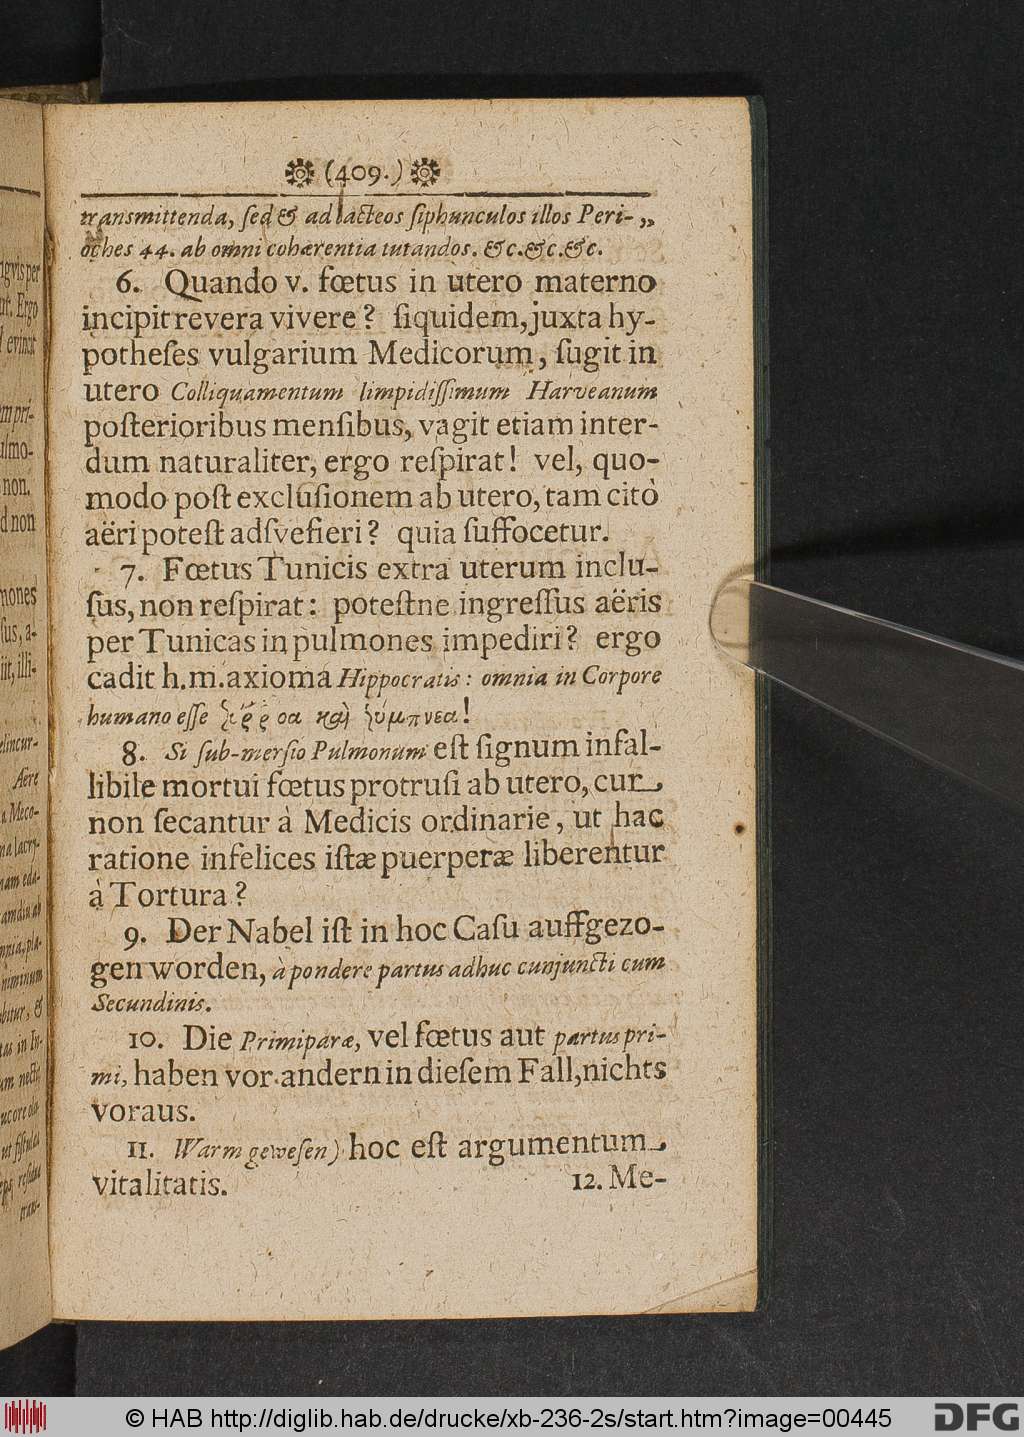 (409.)
transmittenda, ſed & ad lacteos ſiphunculos illos Peri- „
oches 44. ab omni cohærentia tutandos. &c.&c.&c.
6. Quando v. fœtus in utero materno
incipit revera vivere? ſiquidem, juxta hy-
potheſes vulgarium Medicorum, ſugit in
utero Colliquamentum limpidiſſimum Harveanum
poſterioribus menſibus, vagit etiam inter-
dum naturaliter, ergo reſpirat! vel, quo-
modo poſt excluſionem ab utero, tam citò
aëri poteſt adſveſieri? quia ſuffocetur.
7. Fœtus Tunicis extra uterum inclu-
ſus, non reſpirat: poteſtne ingreſſus aëris
per Tunicas in pulmones impediri? ergo
cadit h.m. axioma Hippocratis: omnia in Corpore
humano eſſe !
8. Si ſub-merſio Pulmonum eſt ſignum infal-
libile mortui fœtus protruſi ab utero, cur
non ſecantur à Medicis ordinarie, ut hac
ratione infelices iſtæ puerperæ liberentur
à Tortura?
9. Der Nabel iſt in hoc Caſu auffgezo-
gen worden, à pondere partus adhuc cunjuncti cum
Secundinis.
10. Die Primiparæ, vel fœtus aut partus pri-
mi, haben vor andern in dieſem Fall, nichts
voraus.
11. Warm geweſen) hoc eſt argumentum
vitalitatis.
12. Me-
© HAB http://diglib.hab.de/drucke/xb-236-2s/start.htm?image=00445
DFG